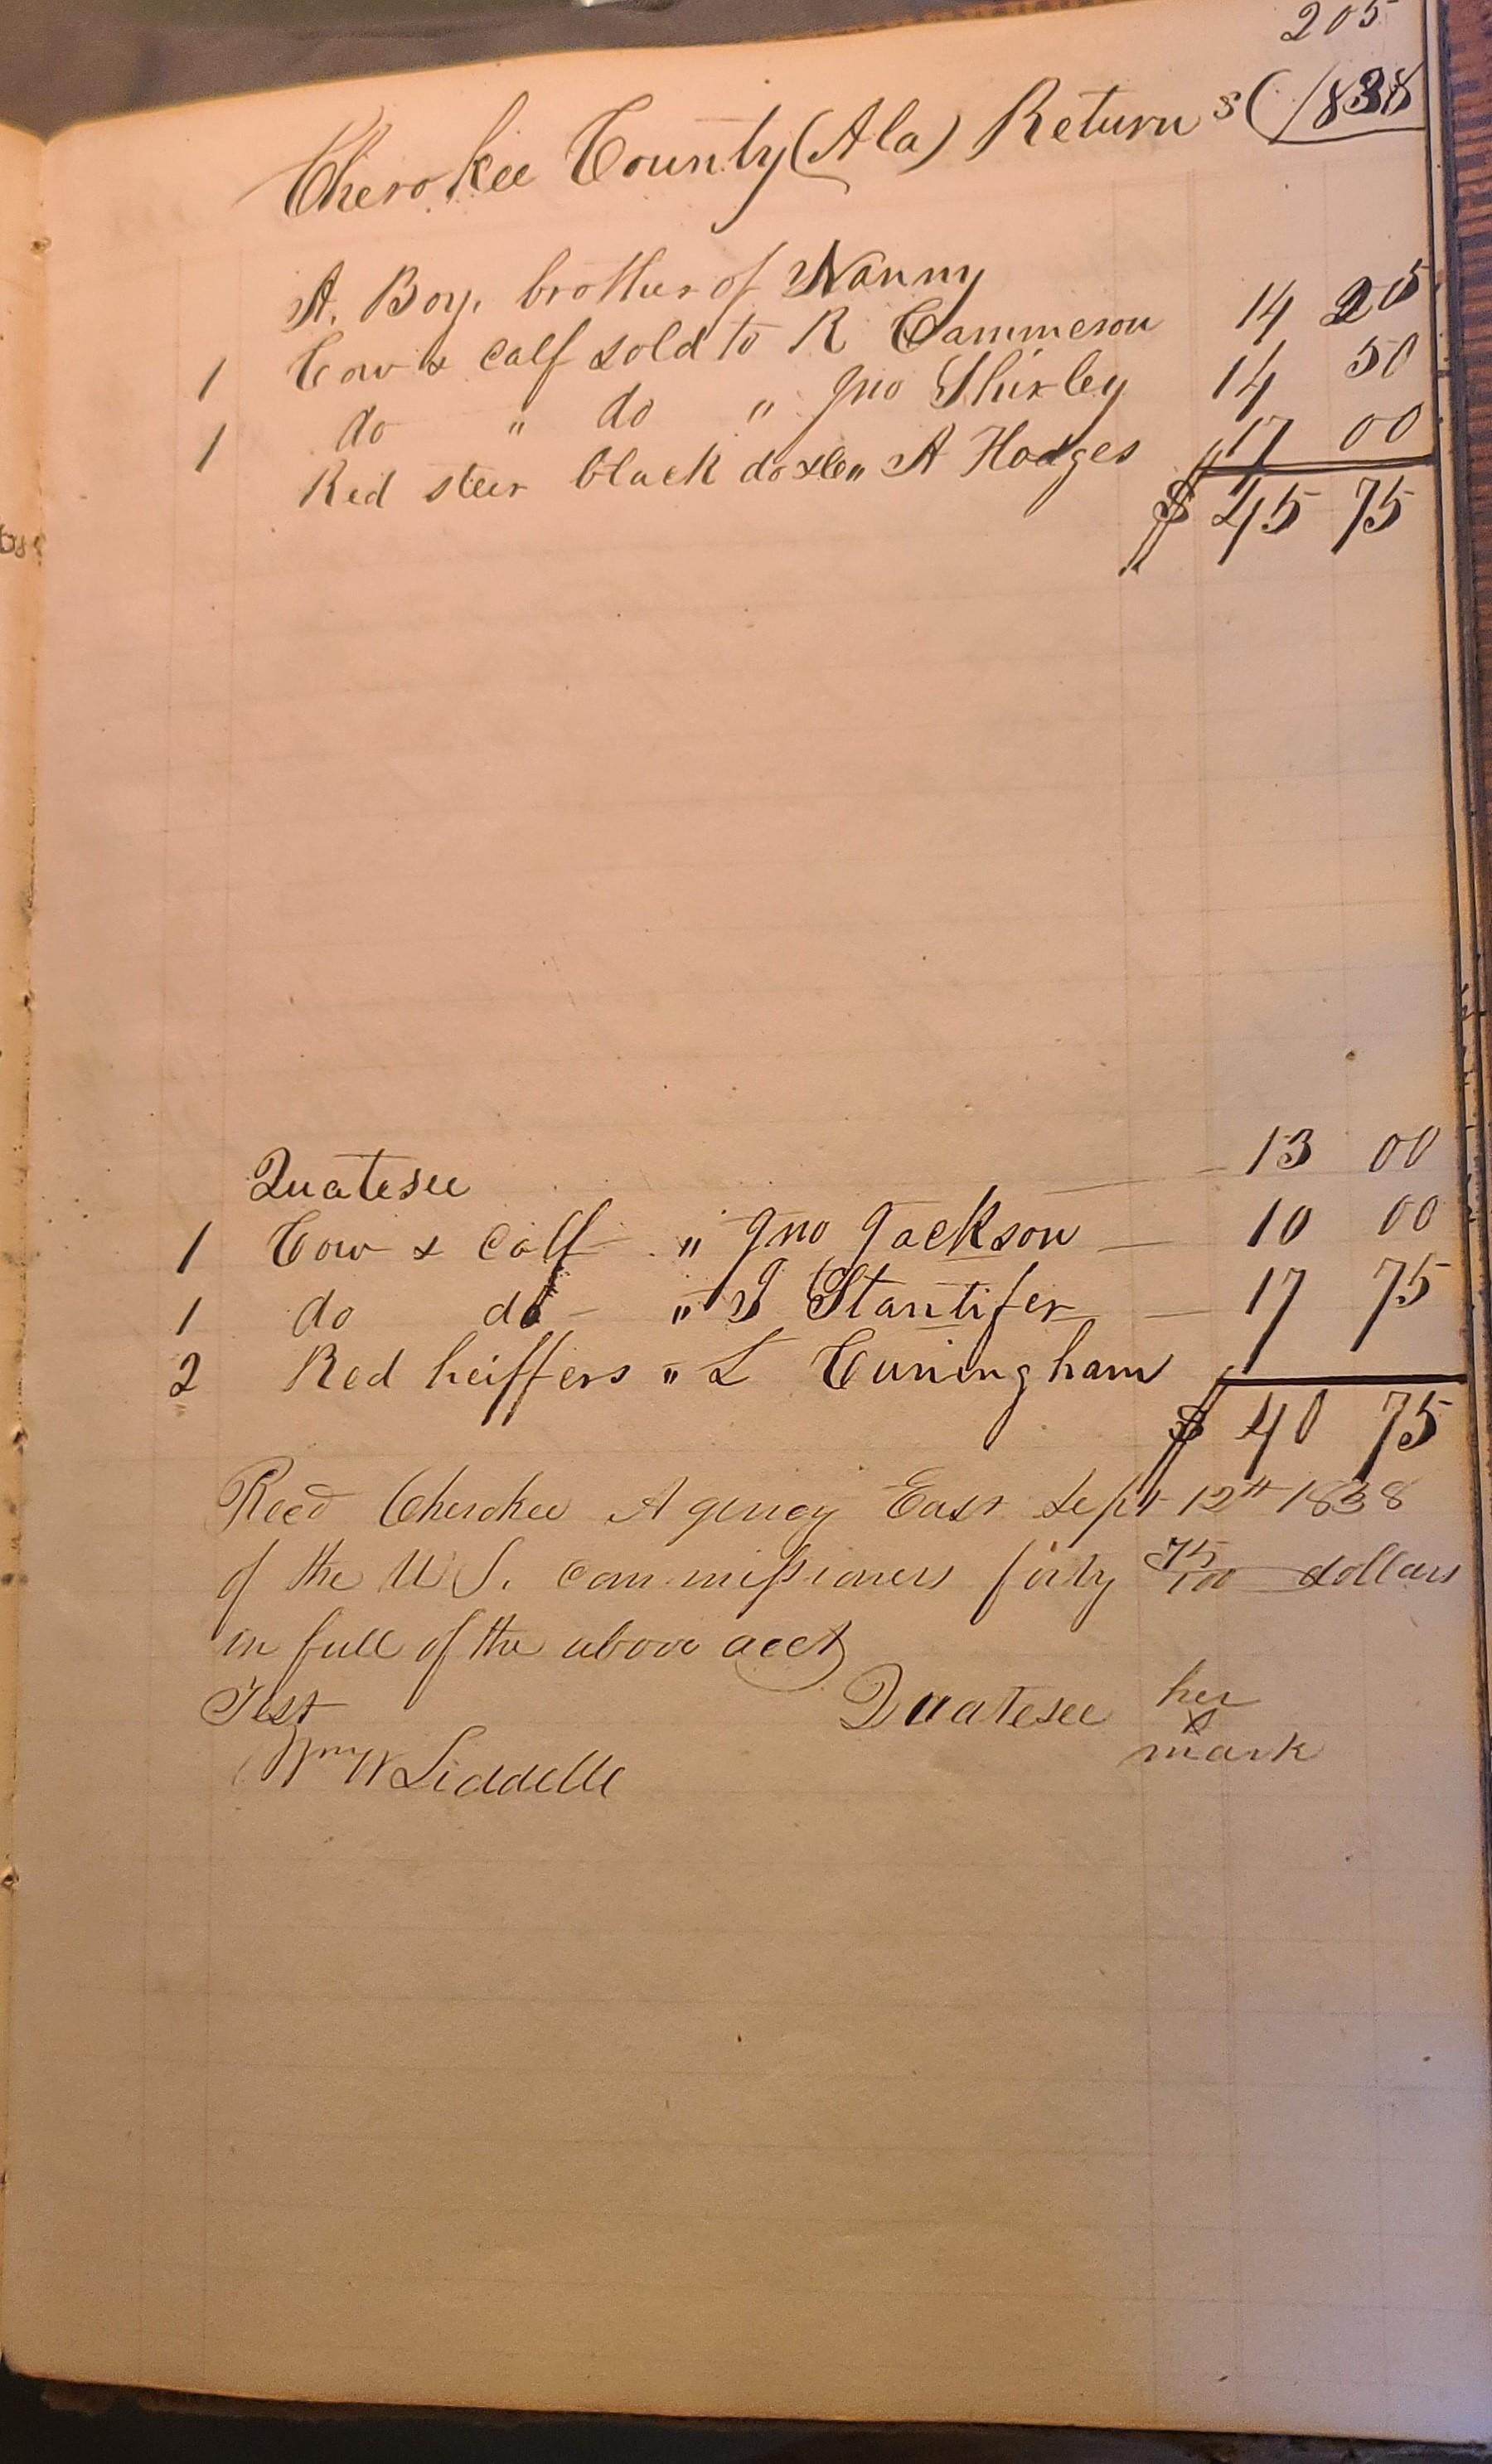 205
Cherokee County (Ala) Returns (1838
A. Boy, brother of Nanny
1 Cow & Calf sold to R Cammeron 14 25
1 do " do " Jno Shirley 14 50
Red steer black do " A Hodges 17 00
$ 45 75
Quatesee
1 Cow & Calf " Jno Jackson — 13 00
1 do do — " J Stantifer — 10 00
2 Red heiffers " L Cuningham 17 75
$ 40 75
Recd Cherokee Agency East Sept 12th 1838
of the U.S. Commissioners forty 75/100 dollars
in full of the above acct
Test
Quatesee her
x
mark
Wm W Liddelle